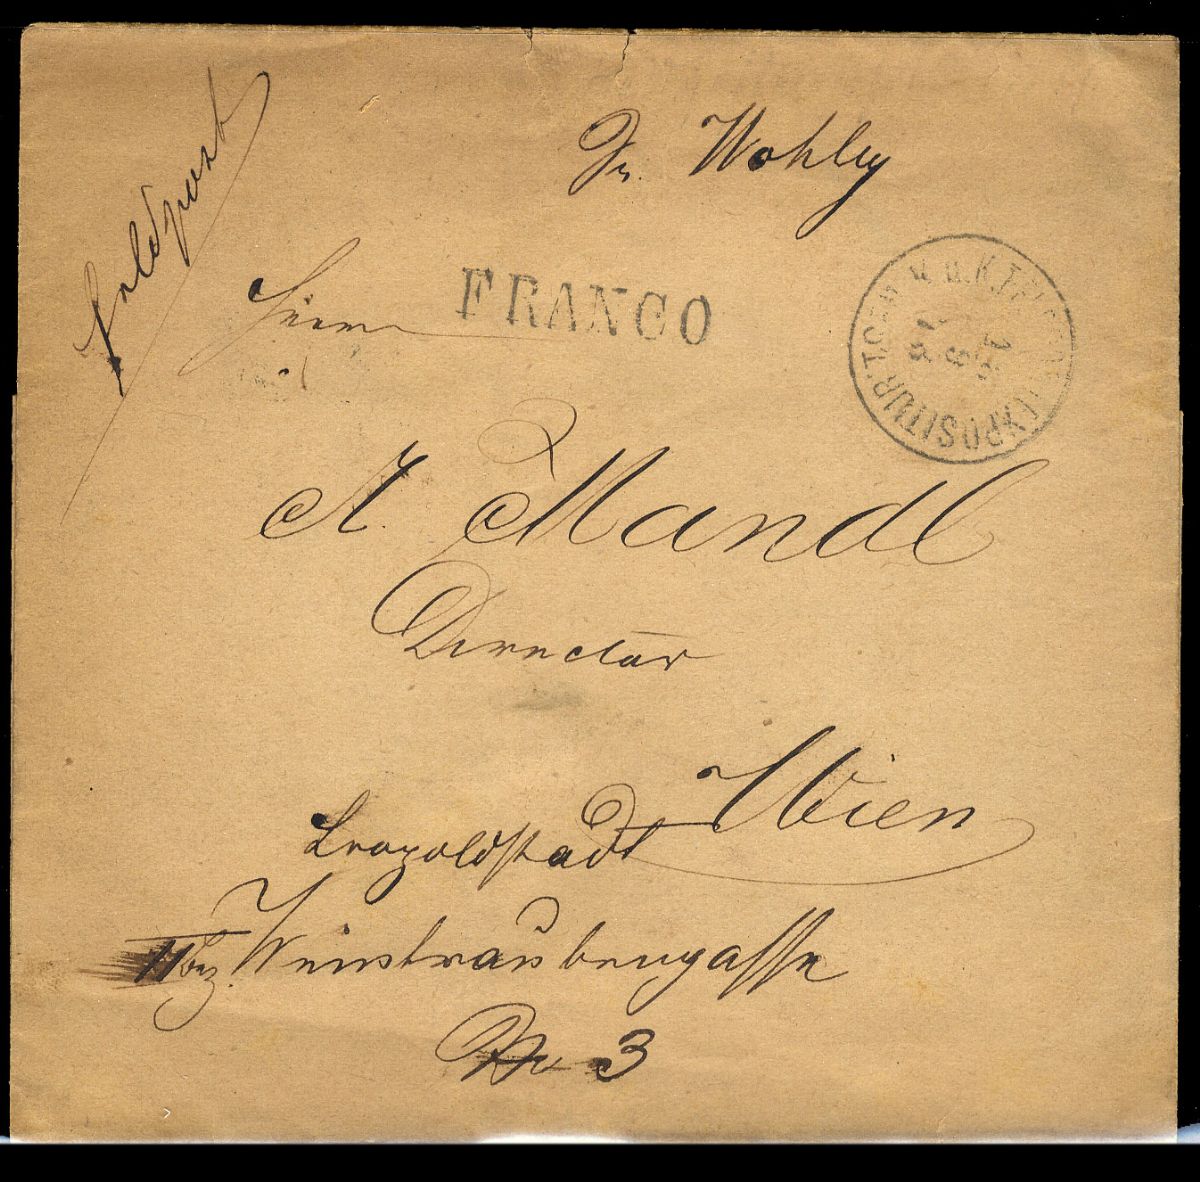 Feldpost
Dr. Wohlby
Herrn
FRANCO
EXPOSITUR
A. Mandl
Director
Wien
Leopoldstadt
II Bez. Weintraubengasse
Nr 3